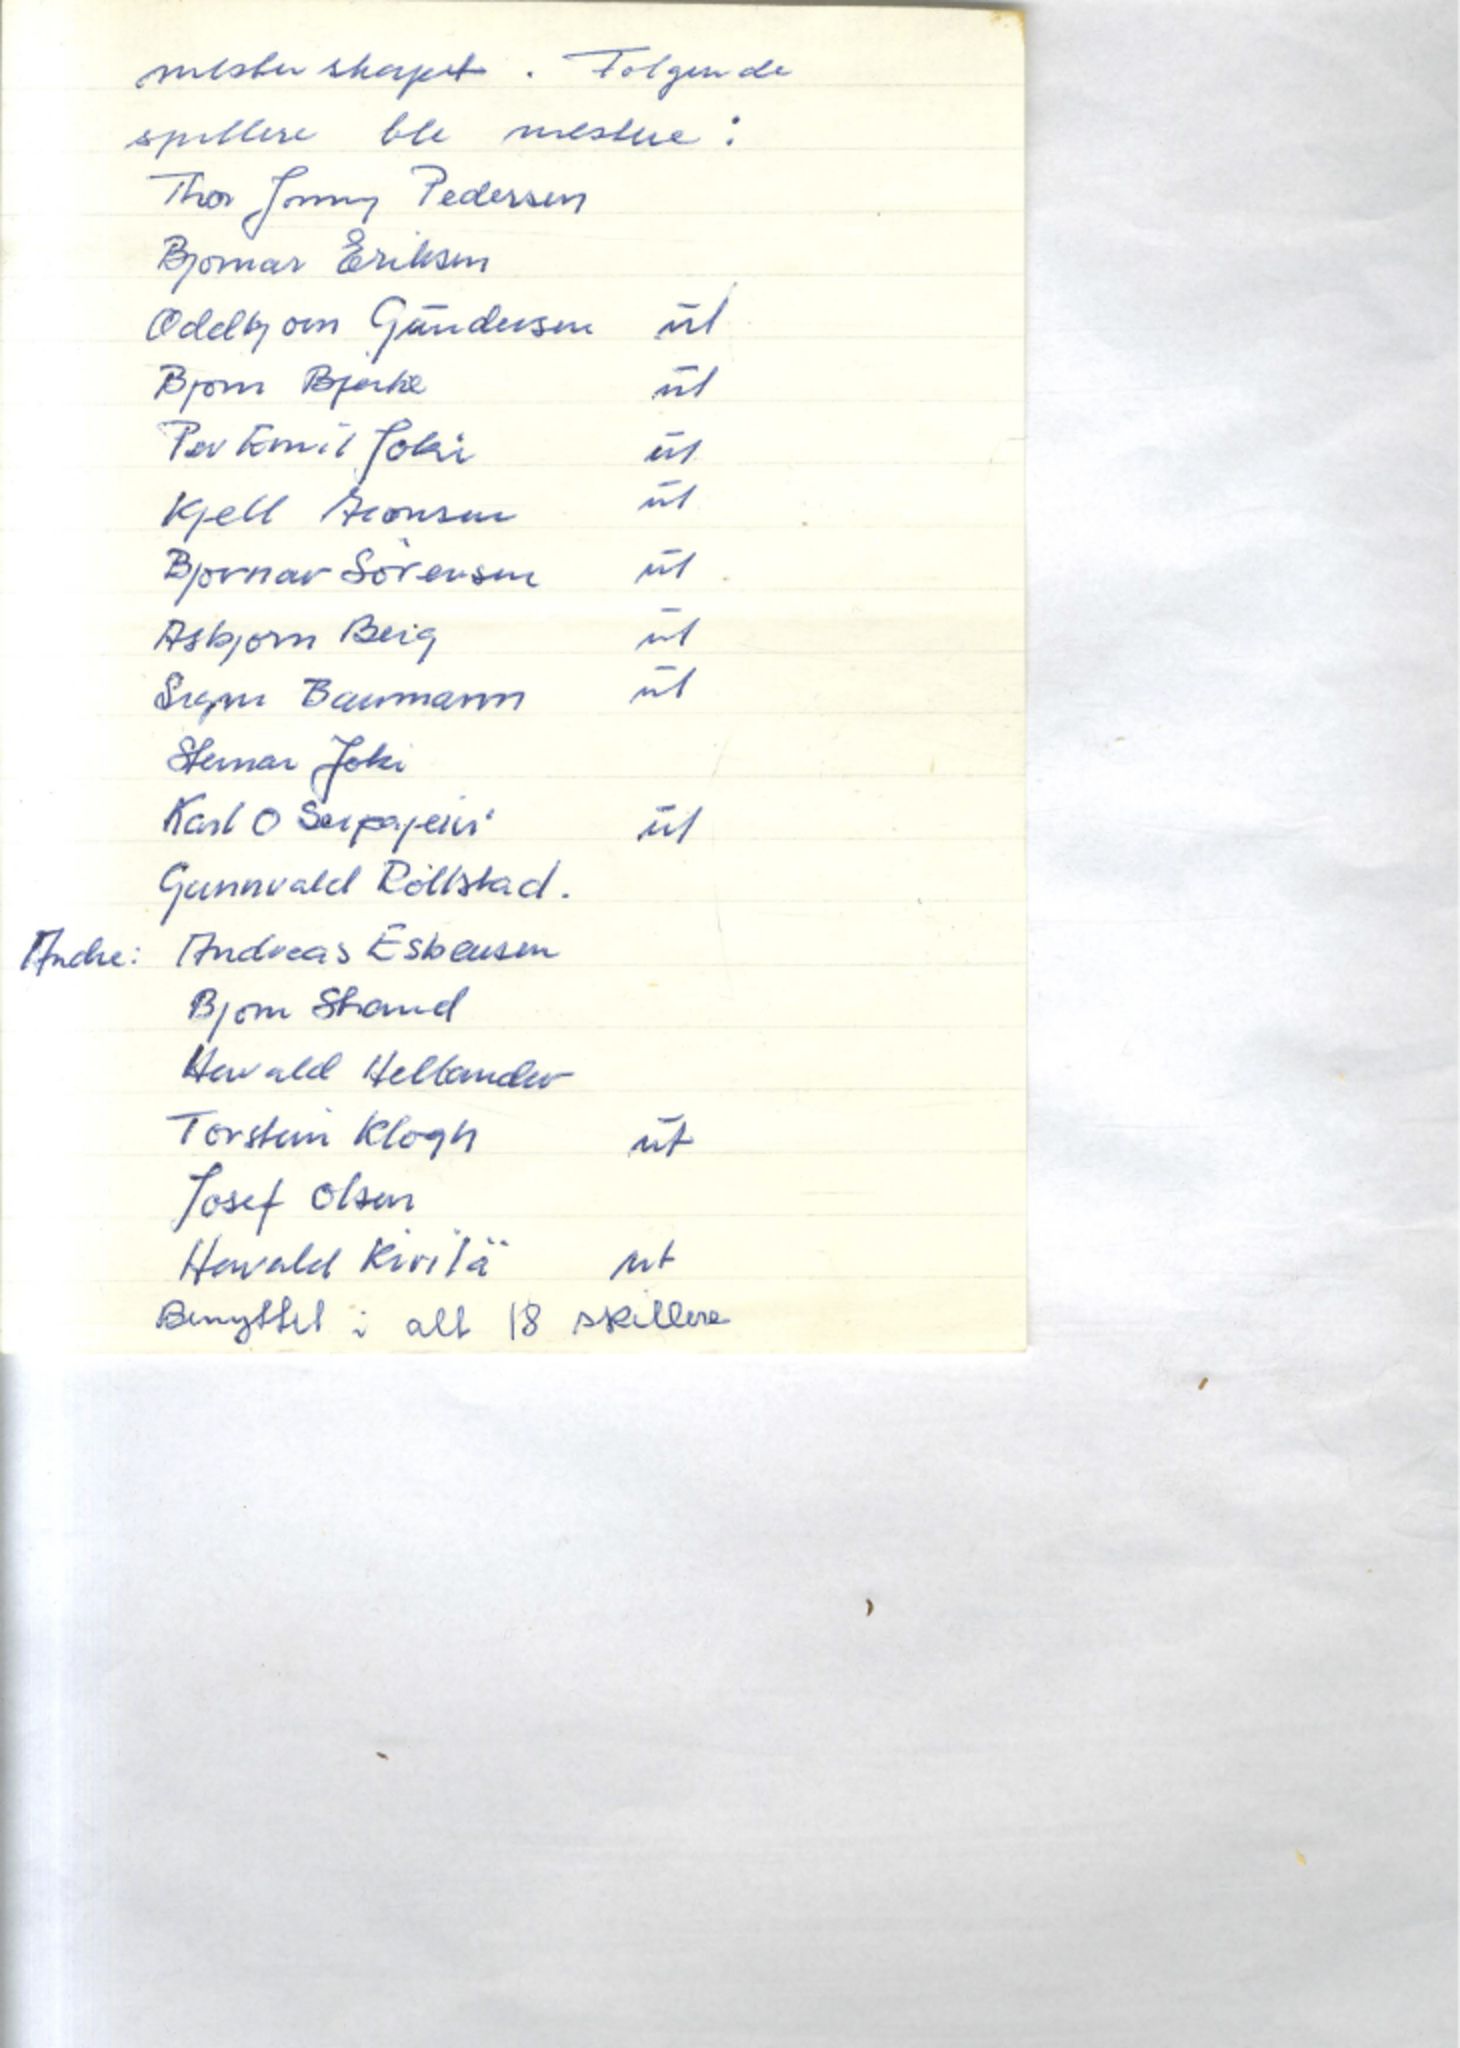 mesterskapet. Følgende
spillere ble mestere:
Thor Jonny Pedersen
Bjornar Eriksen
Oddbjorn Gūndersen ūt
Bjorn Bjerke ūt
Per Emil Joki ūt
Kjell Aronsen ūt
Bjornar Sörensen ūt
Asbjorn Berg ūt
Baumann ūt
Steinar Joki
Karl O Seipajervi ūt
Gunnvald Rollstad.
Andre: Andreas Esbensen
Bjorn Strand
Harvald Hellander
Torstein Klogh ūt
Josef Olsen
Harvald Kivilä ut
Benyttet i alt 18 skillere